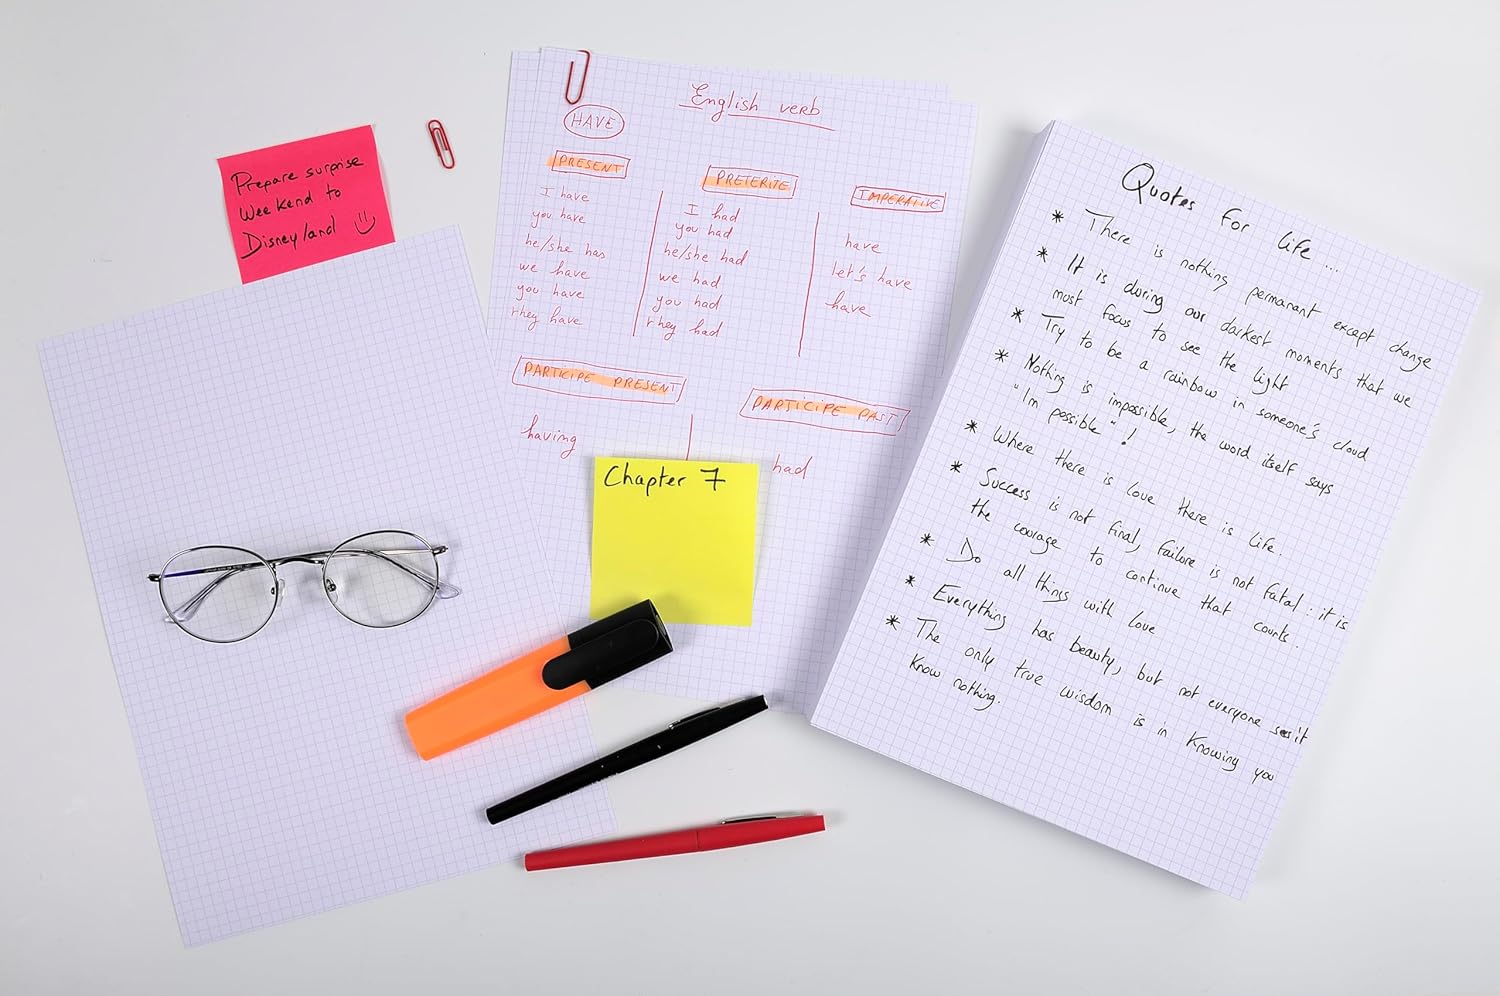 Prepare surprise
Weekend to
Disneyland
English verb
HAVE
PRESENT
I have
you have
he/she has
we have
you have
they have
PRETERITE
I had
you had
he/she had
we had
you had
they had
IMPERATIVE
have
let's have
have
PARTICIPE PRESENT
having
PARTICIPE PAST
had
Chapter 7
Quotes for life ...
* There is nothing permanant except change
* It is during our darkest moments that we
must focus to see the light
* Try to be a rainbow in someone's cloud
* Nothing is impossible, the word itself says
"I'm possible"!
* Where there is love there is life.
* Success is not final, failure is not fatal: it is
the courage to continue that counts.
* Do all things with love
* Everything has beauty, but not everyone sees it
* The only true wisdom is in knowing you
know nothing.